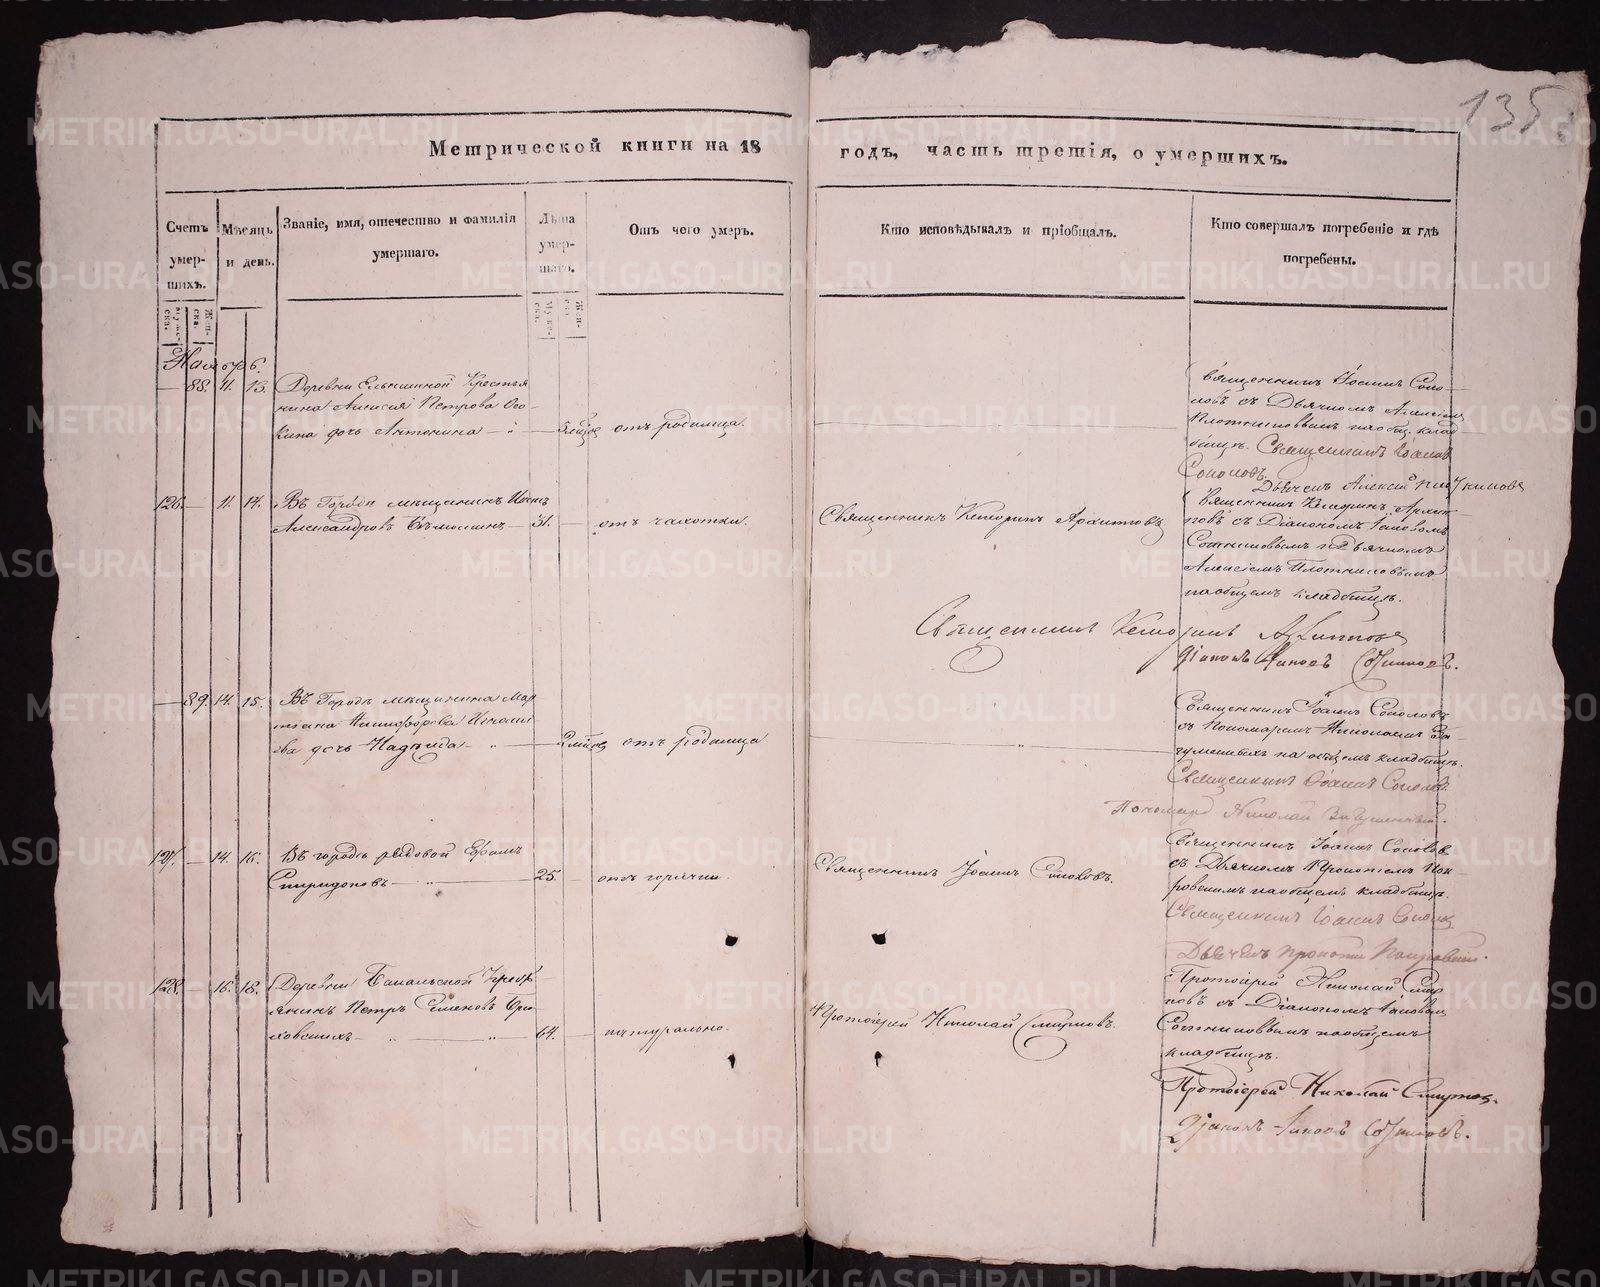 135
Метрической книги на 18
годъ, часть третія, о умершихъ.
Счетъ умер-
шихъ.
Мѣсяцъ
и день.
Званіе, имя, отечество и фамилія
умершаго.
Лѣта
умер-
шаго.
Отъ чего умеръ.
Кто исповѣдывалъ и пріобщалъ.
Кто совершалъ погребеніе и гдѣ
погребены.
Ноябрь.
88. 11. 13. Деревни Крестья
нина Алексѣя Петрова Осо-
кина дочь Антонина
отъ родимца.
Священникъ Іоаннъ Соко-
ловъ съ Дьячкомъ Алексіем
Плотниковымъ наобщ. клад-
бищѣ. Священникъ Іоаннъ
Соколовъ.
Дьячекъ Алексѣй Плотниковъ
126. 11. 14. Въ Городѣ мѣщанинъ
Александровъ 31. отъ чахотки.
Священникъ
Священникъ
съ Діакономъ Іаковомъ
Сотниковымъ и Дьячкомъ
Алексіемъ Плотниковымъ
наобщемъ кладбищѣ.
Священникъ
Діаконъ Іаковъ Сотниковъ.
89. 14. 15. Въ Городѣ мѣщанина Мар
тіана Никифорова
дочь Надежда 2 мѣсяц отъ родимца
Священникъ Іоаннъ Соколовъ
съ Пономаремъ Николаемъ
на общемъ кладбищѣ.
Священникъ Іоаннъ Соколовъ.
Пономарь Николай
127. 14. 16. Въ городѣ рядовой Ефимъ
Спиридоновъ 25. отъ горячки.
Священникъ Іоаннъ Соколовъ.
Священникъ Іоаннъ Соколов
съ Дьячкомъ Прокопіемъ Пок-
ровскимъ наобщемъ кладбищѣ.
Священникъ Іоаннъ Соколов
Дьячекъ Прокопій Покровскій.
128. 16. 18. Деревни Крестья-
янинъ Петръ Семеновъ
64. натурально.
Протоіерей Николай Смирновъ.
Протоіерей Николай Смир
новъ съ Діакономъ Іаковом
Сотниковымъ наобщемъ
кладбищѣ.
Протоіерей Николай Смирнов.
Діаконъ Іаковъ Сотниковъ.
METRIKI.GASO-URAL.RU